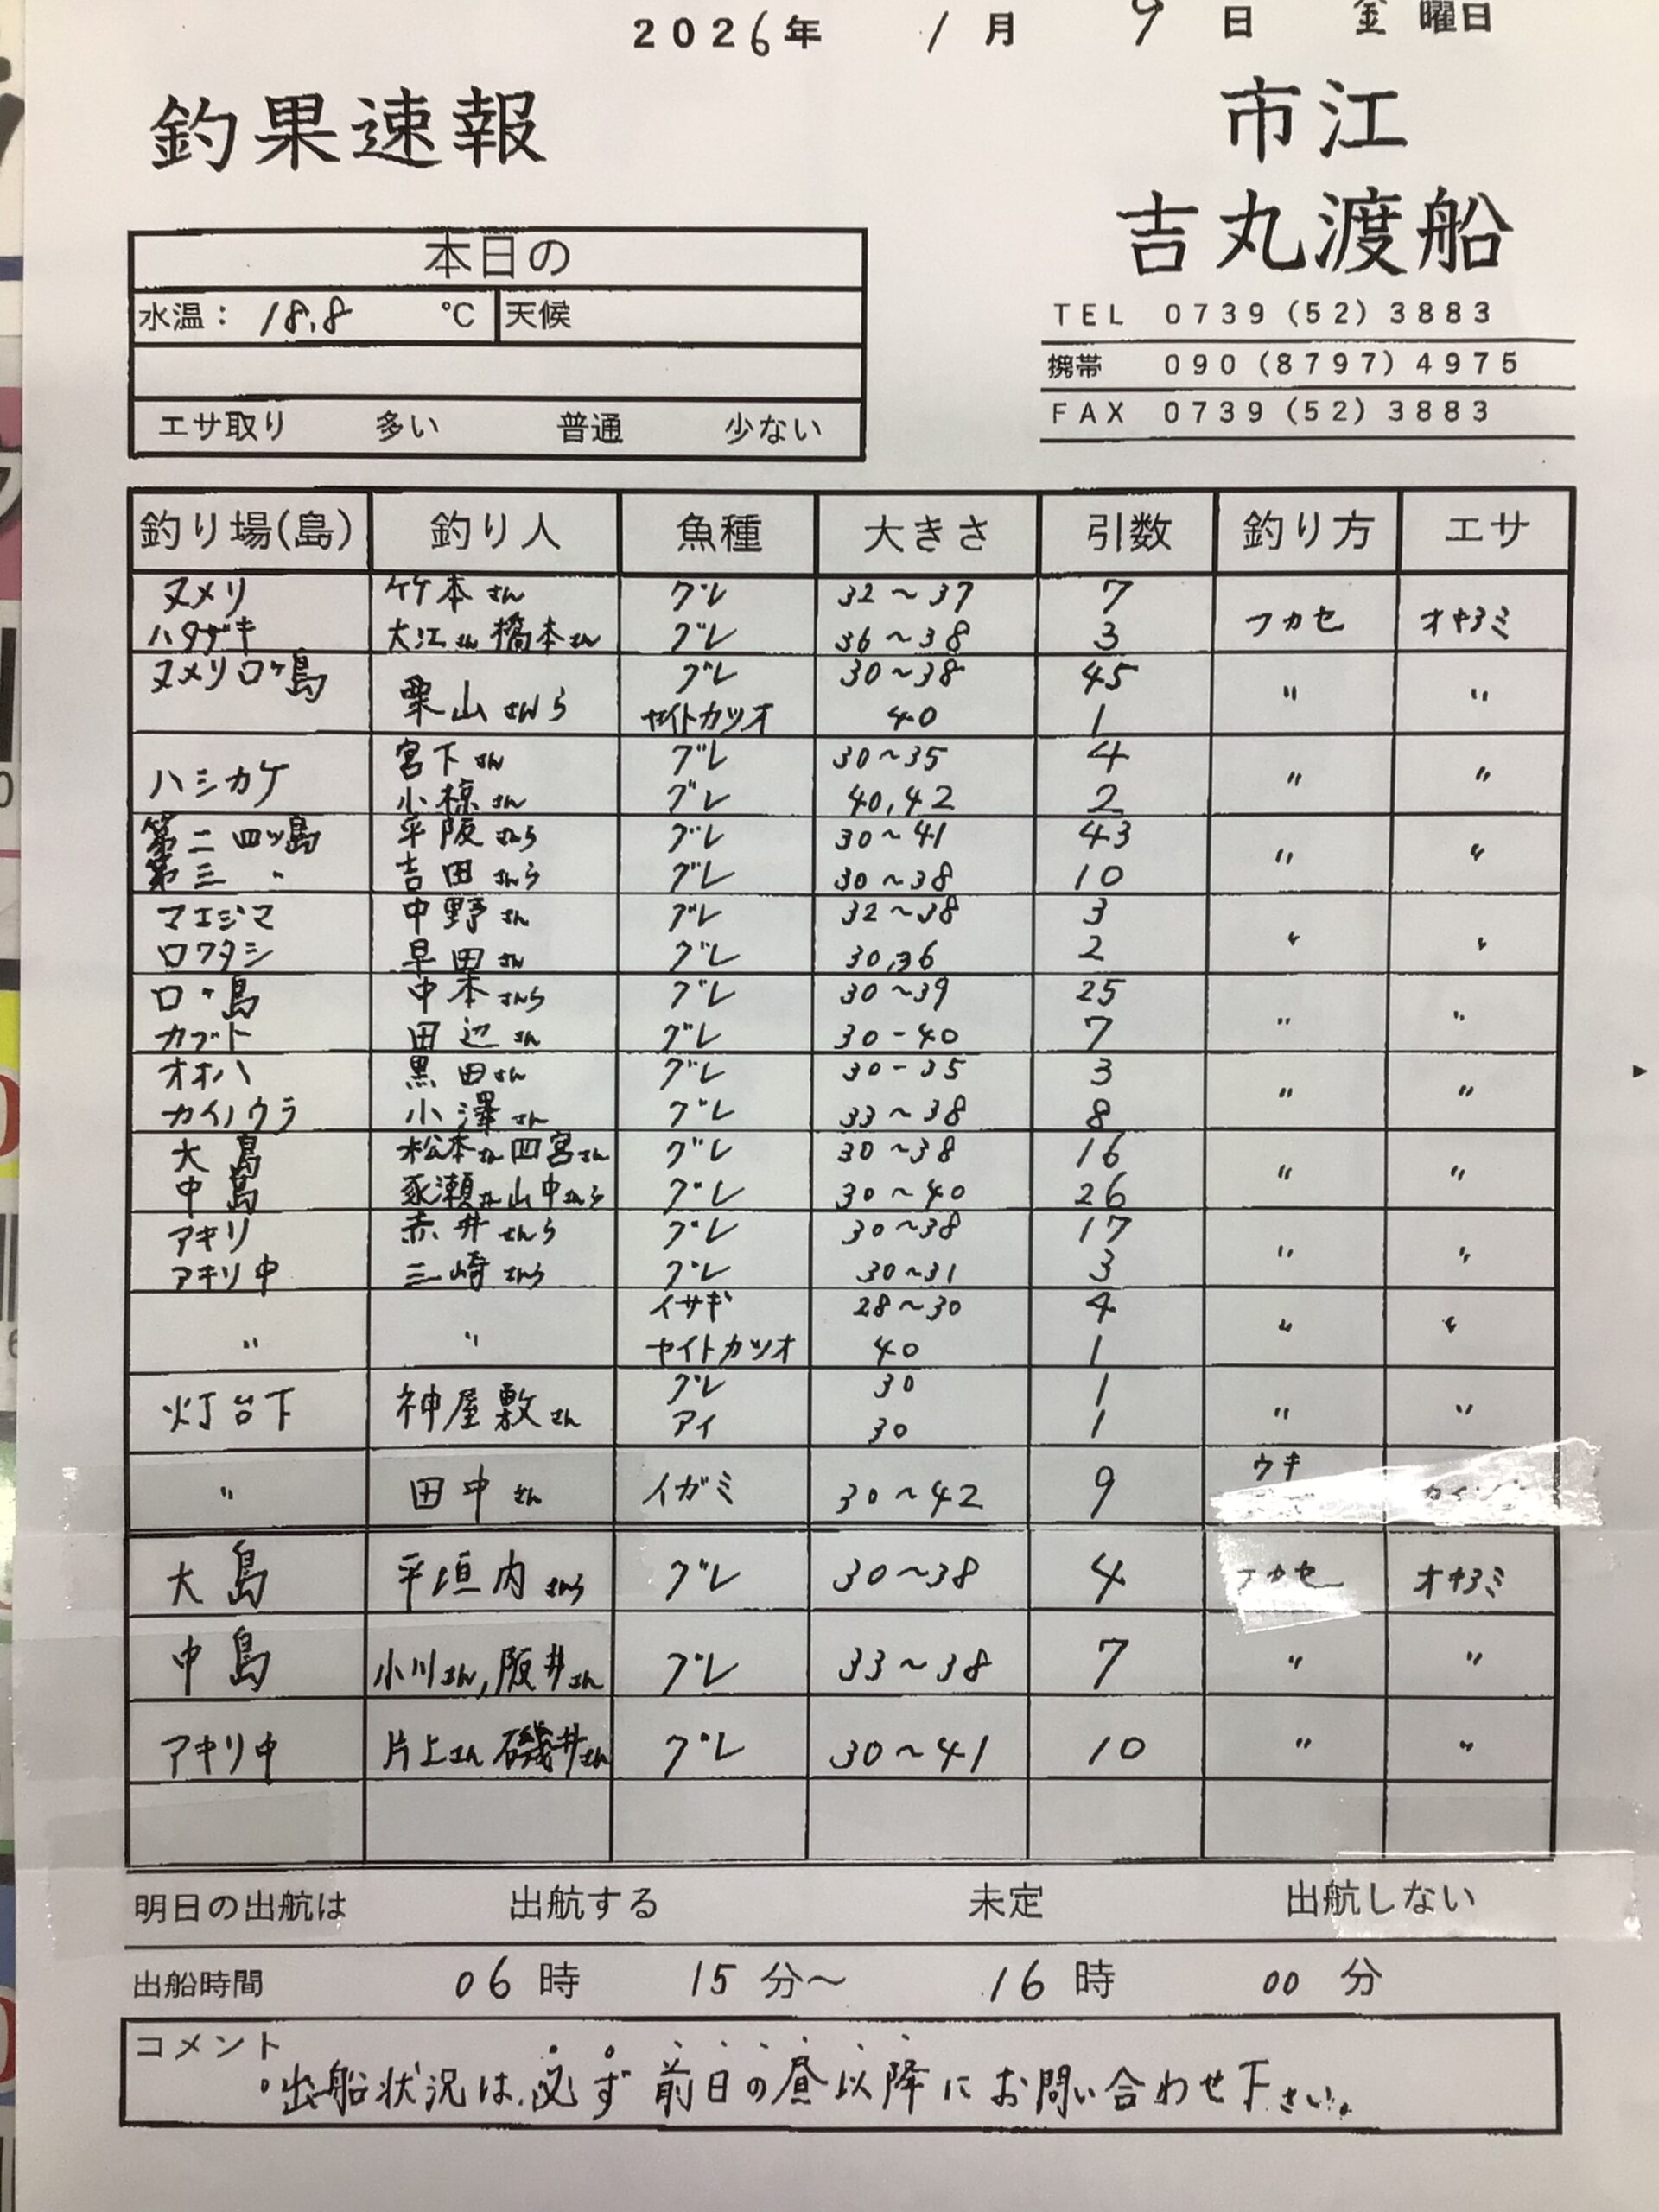 2026年 1月 9日 金曜日
釣果速報
市江
吉丸渡船
本日の
水温： 18.8 ℃ 天候
エサ取り 多い 普通 少ない
TEL 0739(52)3883
携帯 090(8797)4975
FAX 0739(52)3883
釣り場(島) 釣り人 魚種 大きさ 引数 釣り方 エサ
ヌメリ 竹本さん グレ 32～37 7
フカセ オキアミ
ハタザキ 大江さん 橋本さん グレ 36～38 3
ヌメリロヶ島 栗山さんら グレ 30～38 45 〃 〃
ヤイトカツオ 40 1
ハシカケ 宮下さん グレ 30～35 4 〃 〃
小椋さん グレ 40,42 2
第二四ッ島 平阪さんら グレ 30～41 43 〃 〃
第三 〃 吉田さんら グレ 30～38 10
マエジマ 中野さん グレ 32～38 3 〃 〃
ロワタシ 早田さん グレ 30,36 2
ロヶ島 中本さんら グレ 30～39 25 〃 〃
カブト 田辺さん グレ 30-40 7
オオハ 黒田さん グレ 30-35 3 〃 〃
カイノウラ 小澤さん グレ 33～38 8
大島 松本さん 四宮さん グレ 30～38 16 〃 〃
中島 瀬さん 山中さんら グレ 30～40 26
アキリ 赤井さんら グレ 30～38 17 〃 〃
アキリ中 三崎さんら グレ 30～31 3
〃 〃 イサギ 28～30 4 〃 〃
ヤイトカツオ 40 1
灯台下 神屋敷さん グレ 30 1 〃 〃
アイ 30 1
〃 田中さん イガミ 30～42 9 ウキ
大島 平垣内さんら グレ 30～38 4 フカセ オキアミ
中島 小川さん,阪井さん グレ 33～38 7 〃 〃
アキリ中 片上さん 磯井さん グレ 30～41 10 〃 〃
明日の出航は 出航する 未定 出航しない
出船時間 06時 15分～ 16時 00分
コメント
・出船状況は、必ず前日の昼以降にお問い合わせ下さい。